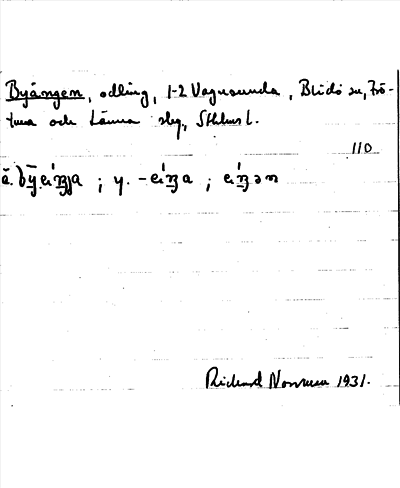 Byängen, odling, 1-2 Vagnsunda, Blidö sn, Frö-
tuna och Länna slg, Sthlms l.
110
Richard Norrman 1931.